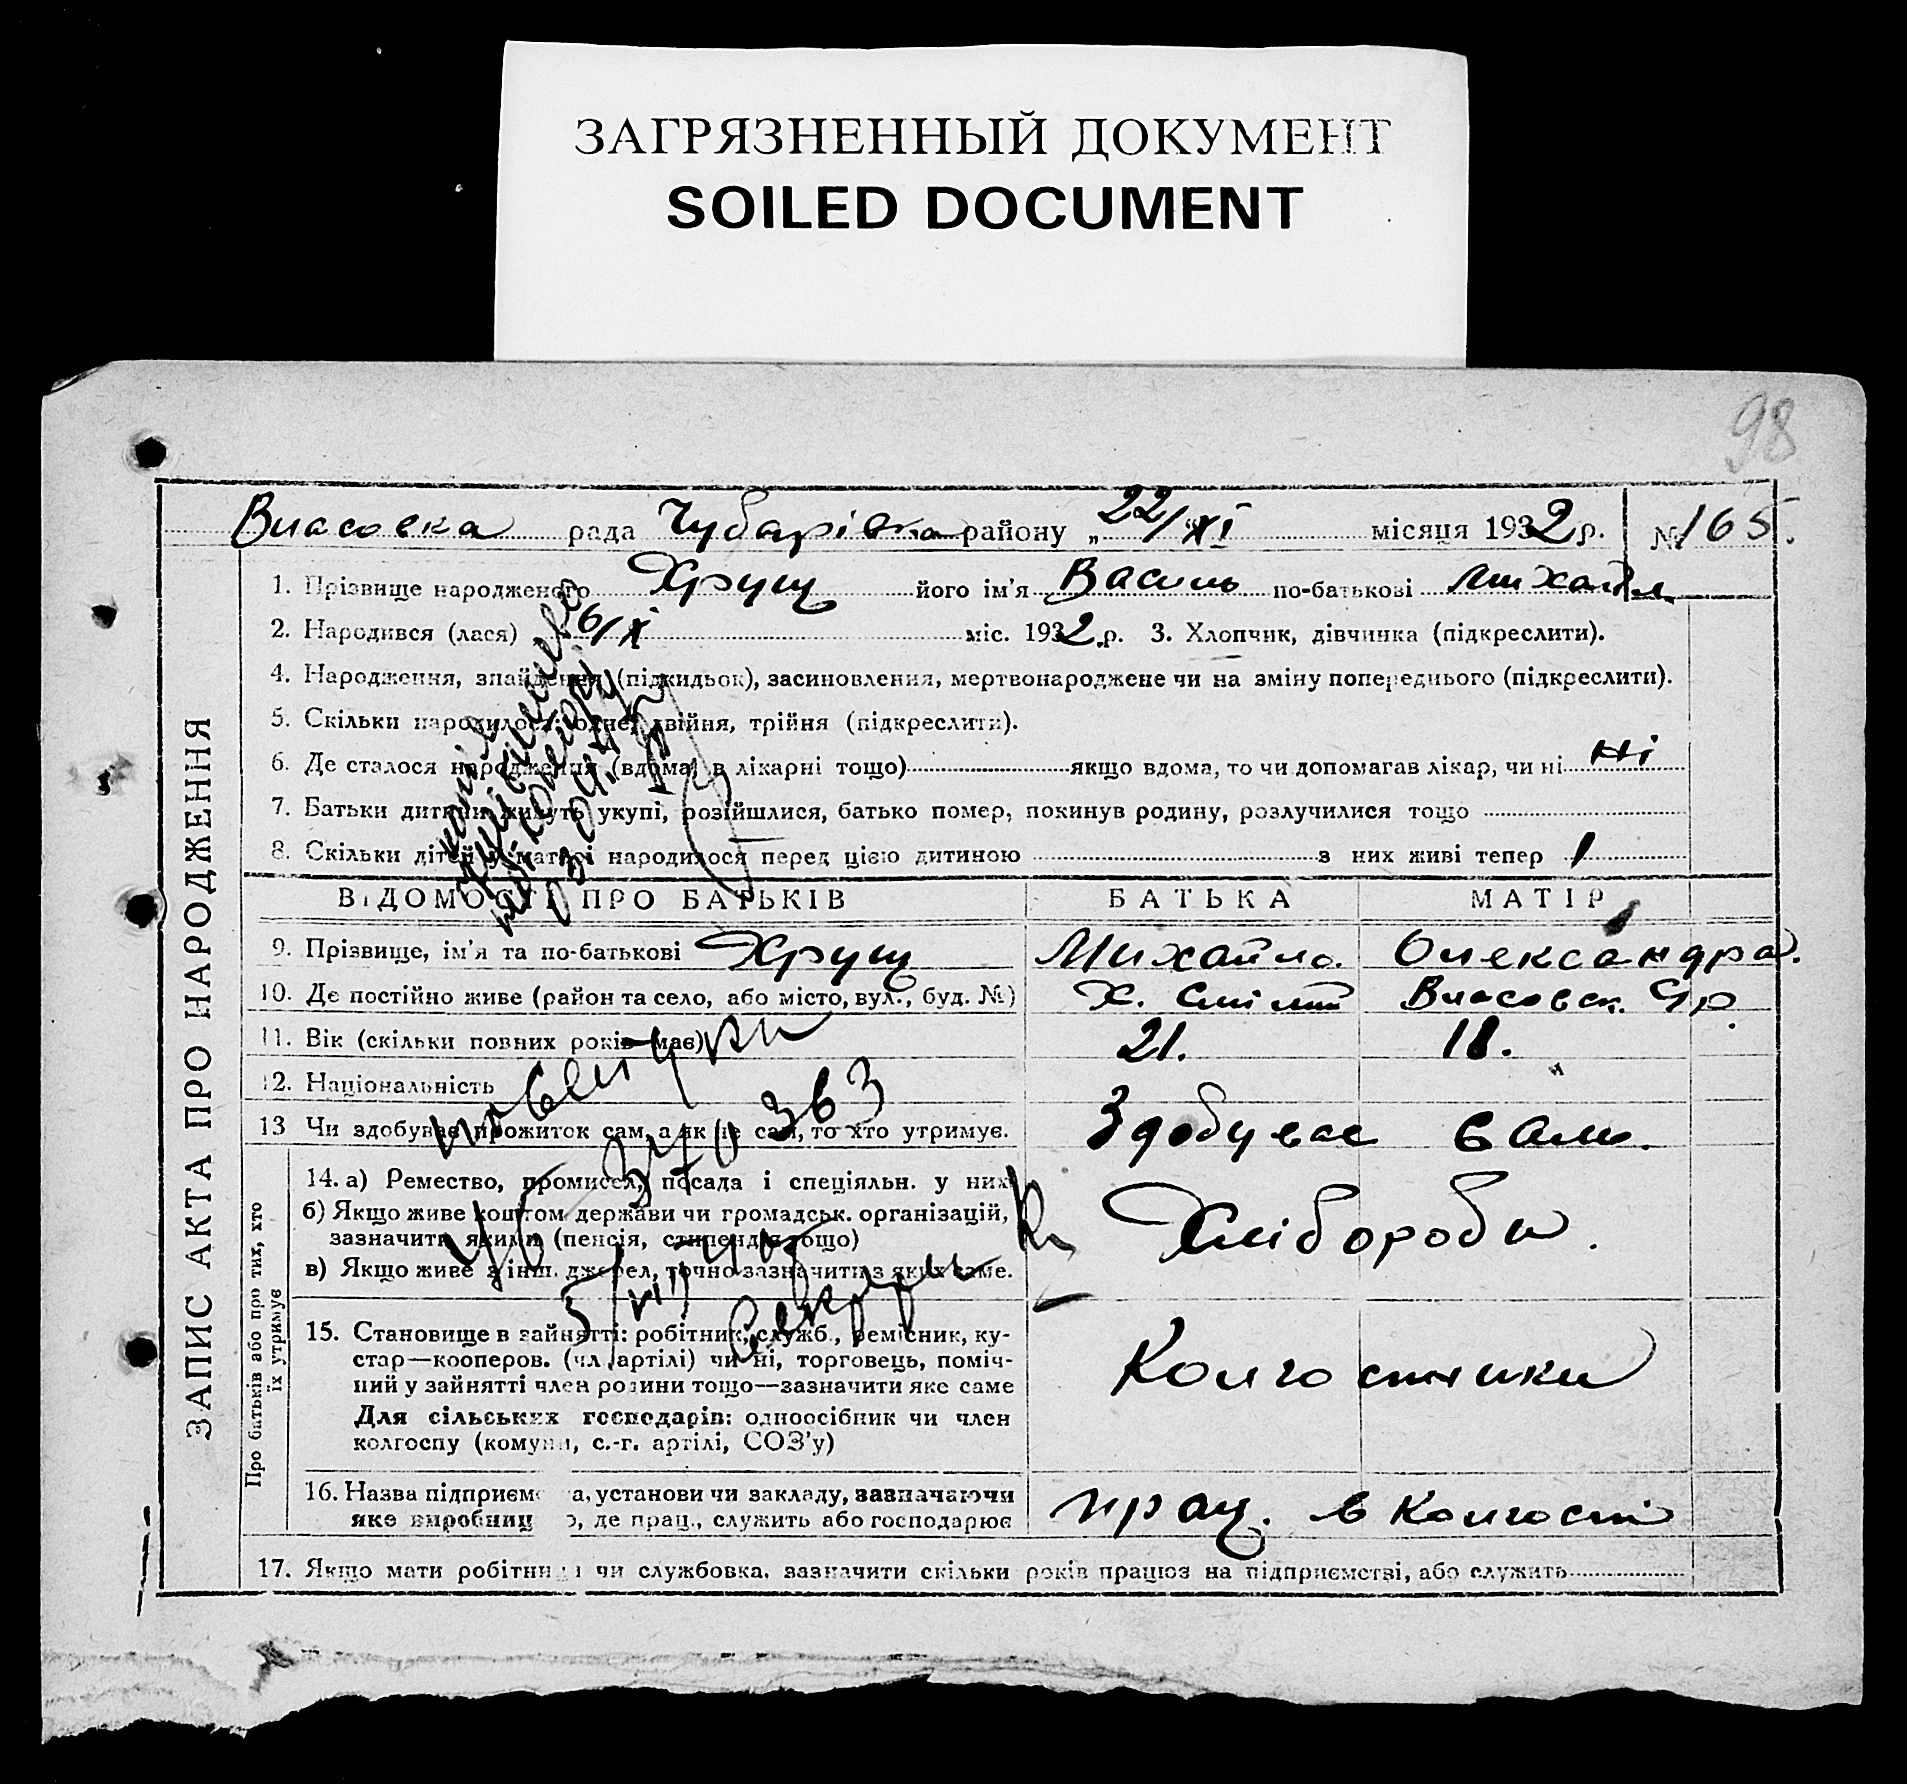 ЗАГРЯЗНЕННЫЙ ДОКУМЕНТ
SOILED DOCUMENT
98
Власовка рада Чубарівка району „ 22/XI місяця 1932 р. № 165.
1. Прізвище народженого Хрущ його ім'я Василь по-батькові Михайл
2. Народився (лася) 6/X міс. 1932 р. 3. Хлопчик, дівчинка (підкреслити).
4. Народження, знайдення (підкидьок), засиновлення, мертвонароджене чи на зміну попереднього (підкреслити).
5. Скільки народилося: одне, двійня, трійня (підкреслити).
6. Де сталося народження (вдома, в лікарні тощо) якщо вдома, то чи допомагав лікар, чи ні Ні
7. Батьки дитини живуть укупі, розійшлися, батько помер, покинув родину, розлучилися тощо
8. Скільки дітей у матері народилося перед цією дитиною з них живі тепер 1
ВІДОМОСТІ ПРО БАТЬКІВ БАТЬКА МАТІР
9. Прізвище, ім'я та по-батькові Хрущ Михайло. Олександра.
10. Де постійно живе (район та село, або місто, вул., буд. №) Х. Власовск. Чр.
11. Вік (скільки повних років має) 21. 18.
12. Національність
13 Чи здобуває прожиток сам, а як не сам, то хто утримує. Здобуває сам.
Про батьків або про тих, хто
їх утримує
14. а) Ремество, промисел, посада і спеціяльн. у них
б) Якщо живе коштом держави чи громадськ. організацій,
зазначити якими (пенсія, стипендія тощо)
в) Якщо живе з інш. джерел, точно зазначити з яких саме.
Хлібороби.
15. Становище в зайнятті: робітник, служб., ремісник, ку-
стар—кооперов. (чл. артілі) чи ні, торговець, поміч-
ний у зайнятті член родини тощо—зазначити яке саме
Для сільських господарів: одноосібник чи член
колгоспу (комуни, с.-г. артілі, СОЗ'у)
Колгоспники
16. Назва підприєм а, установи чи закладу, зазначаючи
яке виробниц о, де прац., служить або господарює
прац. в колгоспі
17. Якщо мати робітни чи службовка, зазначити скільки років працює на підприємстві, або служить
ЗАПИС АКТА ПРО НАРОДЖЕННЯ